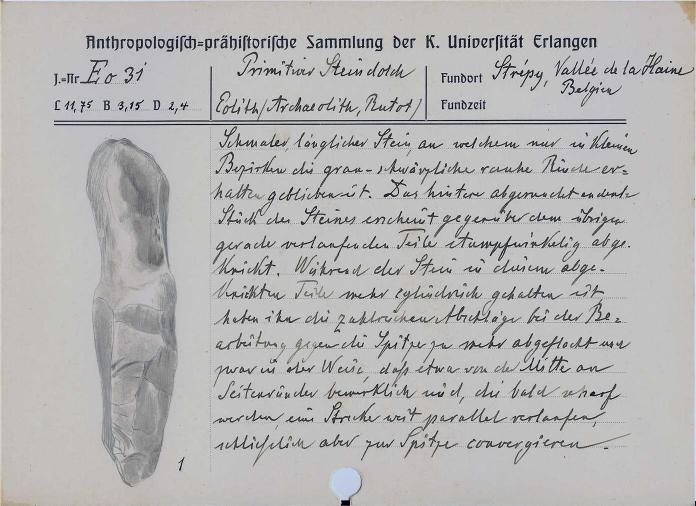 Anthropologisch=prähistorische Sammlung der K. Universität Erlangen
J.=Nr. Eo 31
L 11,75 B 3,15 D 2,4
Primitiver Steindolch
Eolith (Archaeolith, Rutot)
Fundort Strépy, Vallée de la Haine
Belgien
Fundzeit
Schmaler, länglicher Stein, an welchem nur in kleinen
Bezirken die grau-schwärzliche rauhe Rinde er=
halten geblieben ist. Das hintere abgerundet endende
Stück des Steines erscheint gegenüber dem übrigen
gerade verlaufenden Teile stumpfwinkelig abge-
knickt. Während der Stein in diesem abge-
knickten Teile mehr cylindrisch gehalten ist
haben ihn die zahlreichen Abschläge bei der Be=
arbeitung gegen die Spitze zu mehr abgeflacht und
zwar in der Weise daß etwa von der Mitte an
Seitenränder bemerklich sind, die bald scharf
werden, eine Strecke weit parallel verlaufen,
schließlich aber zur Spitze convergieren.
1